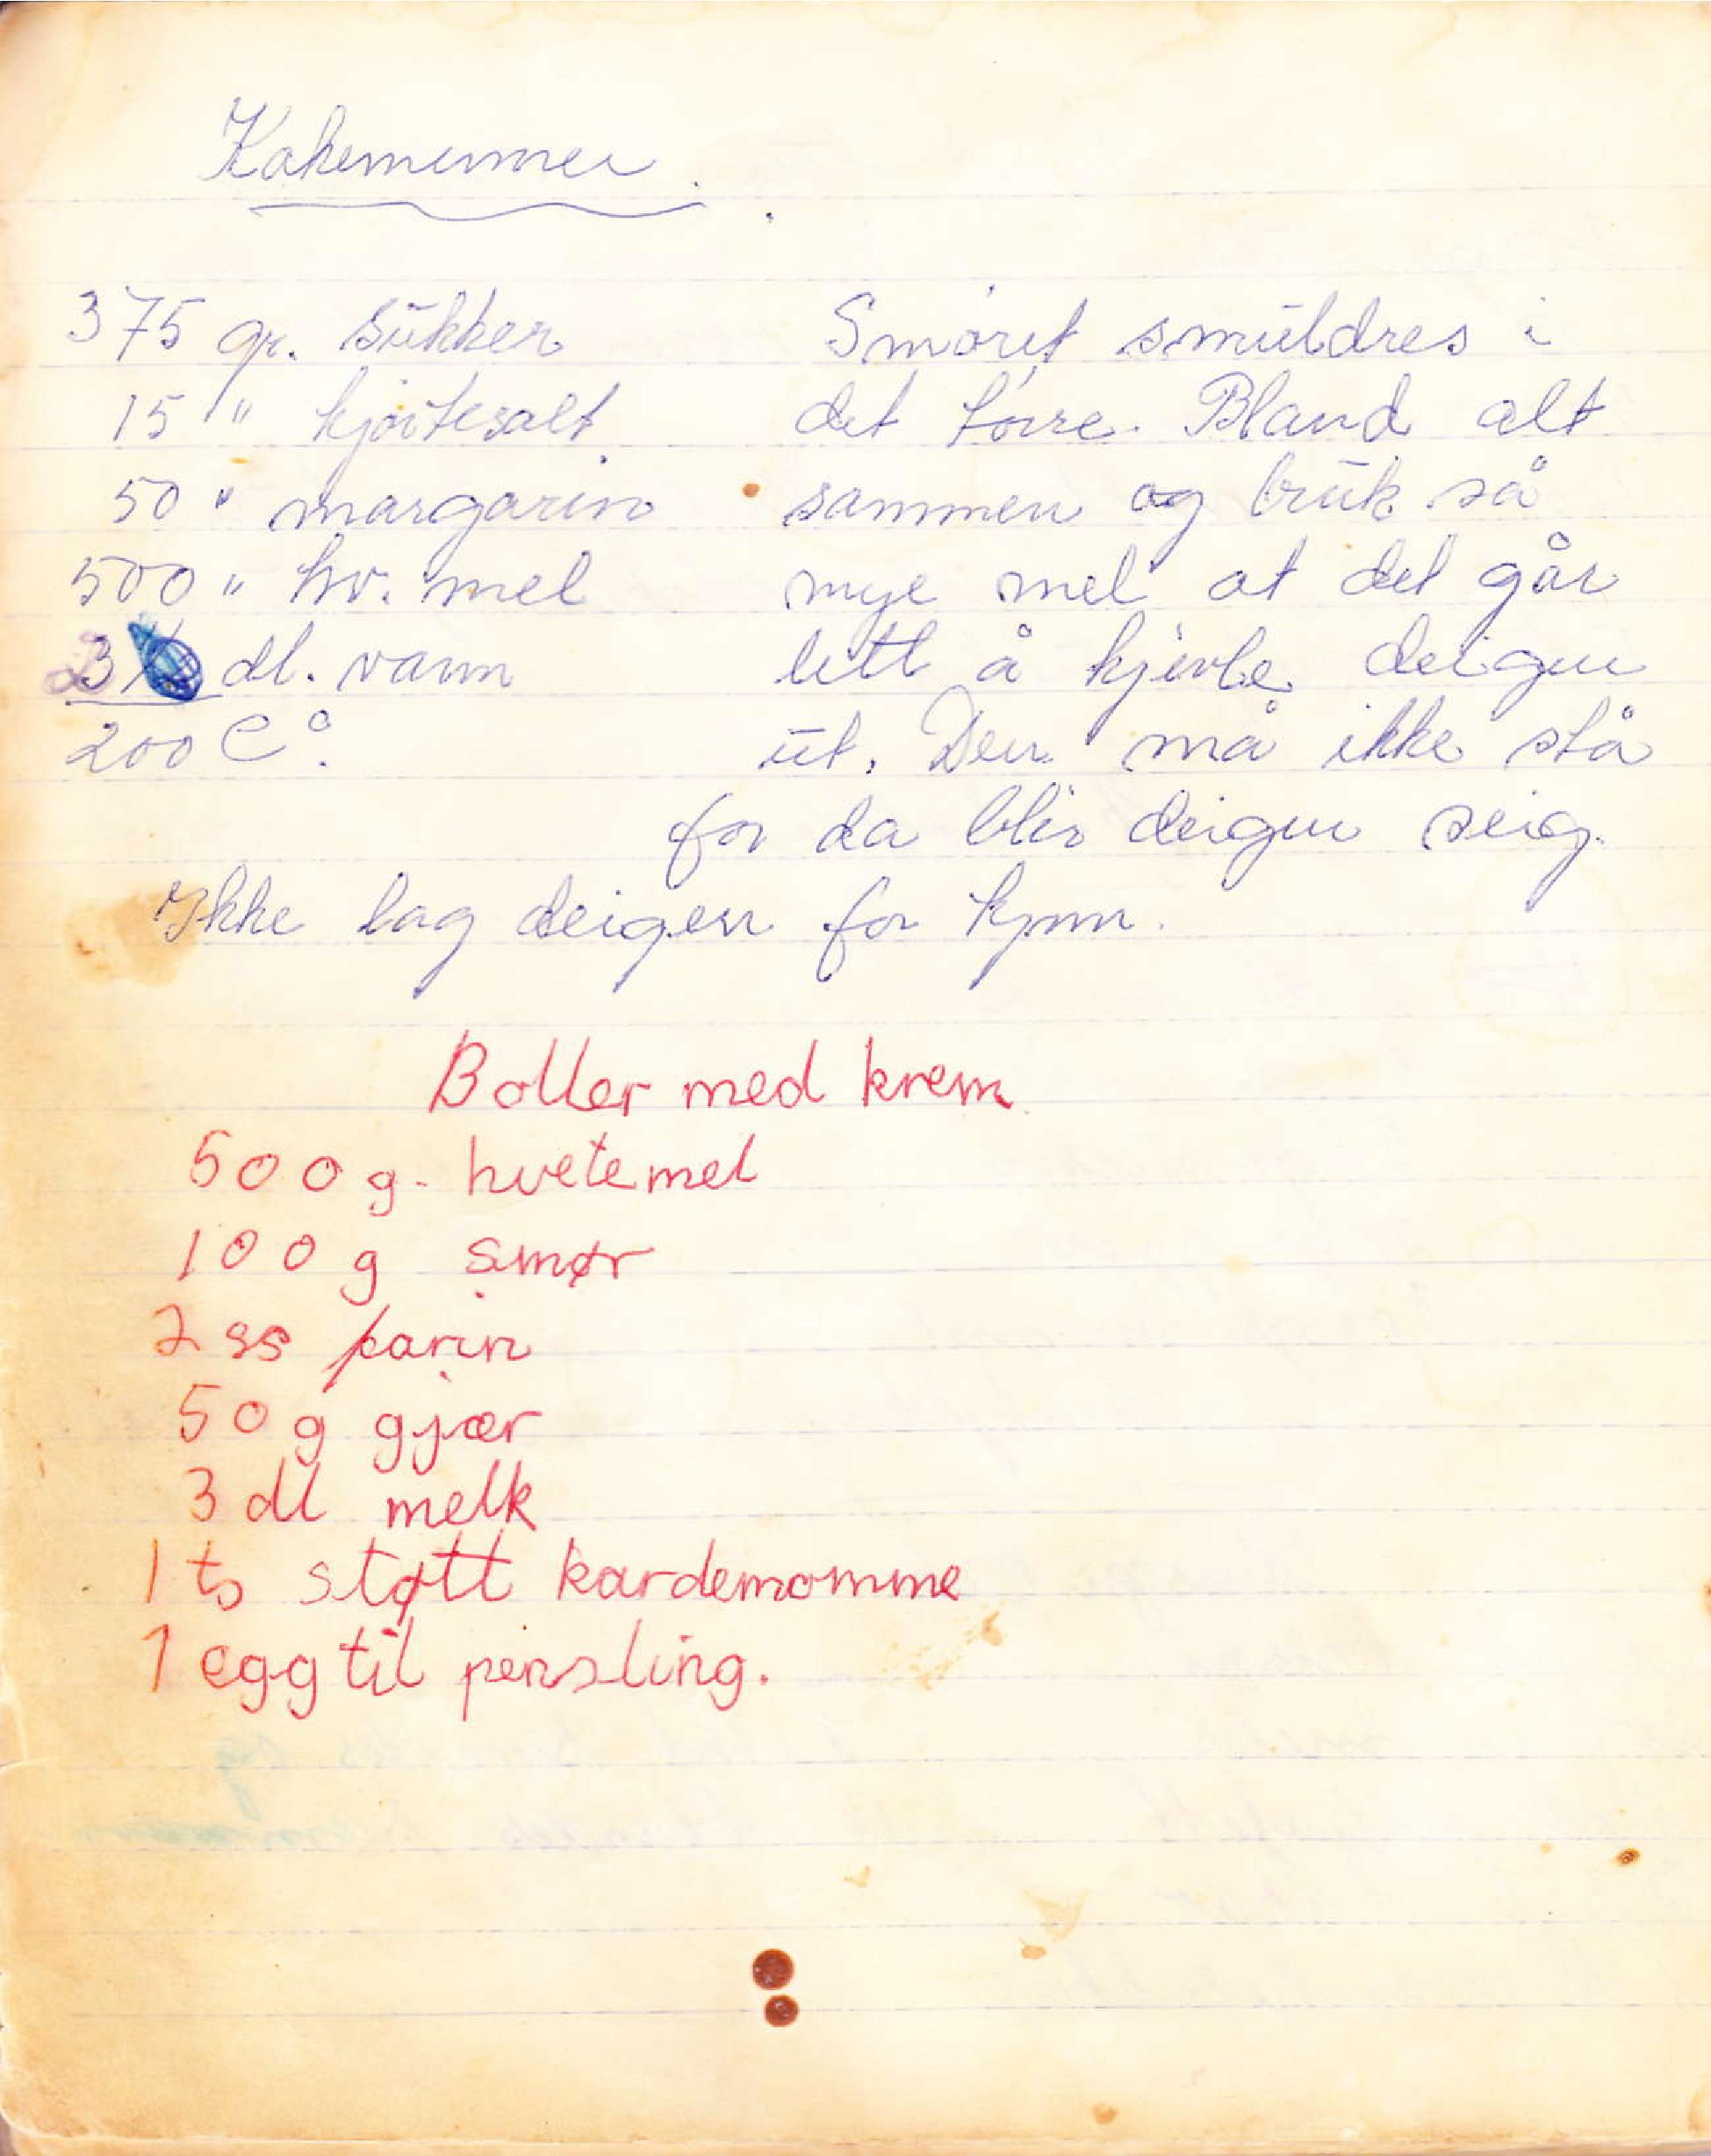 Kakemenner.
375 gr. sukker
15 " hjortesalt
50 " margarin
500 " hv. mel
3 dl. vann
200 C°.
Smøret smuldres i
det tørre. Bland alt
sammen og bruk så
mye mel at det går
lett å kjevle deigen
ut. Den må ikke stå
for da blir deigen seig.
Ikke lag deigen for tynn.
Boller med krem
500 g. hvetemel
100 g smør
2 ss farin
50 g gjær
3 dl melk
1 ts støtt kardemomme
1 egg til pensling.